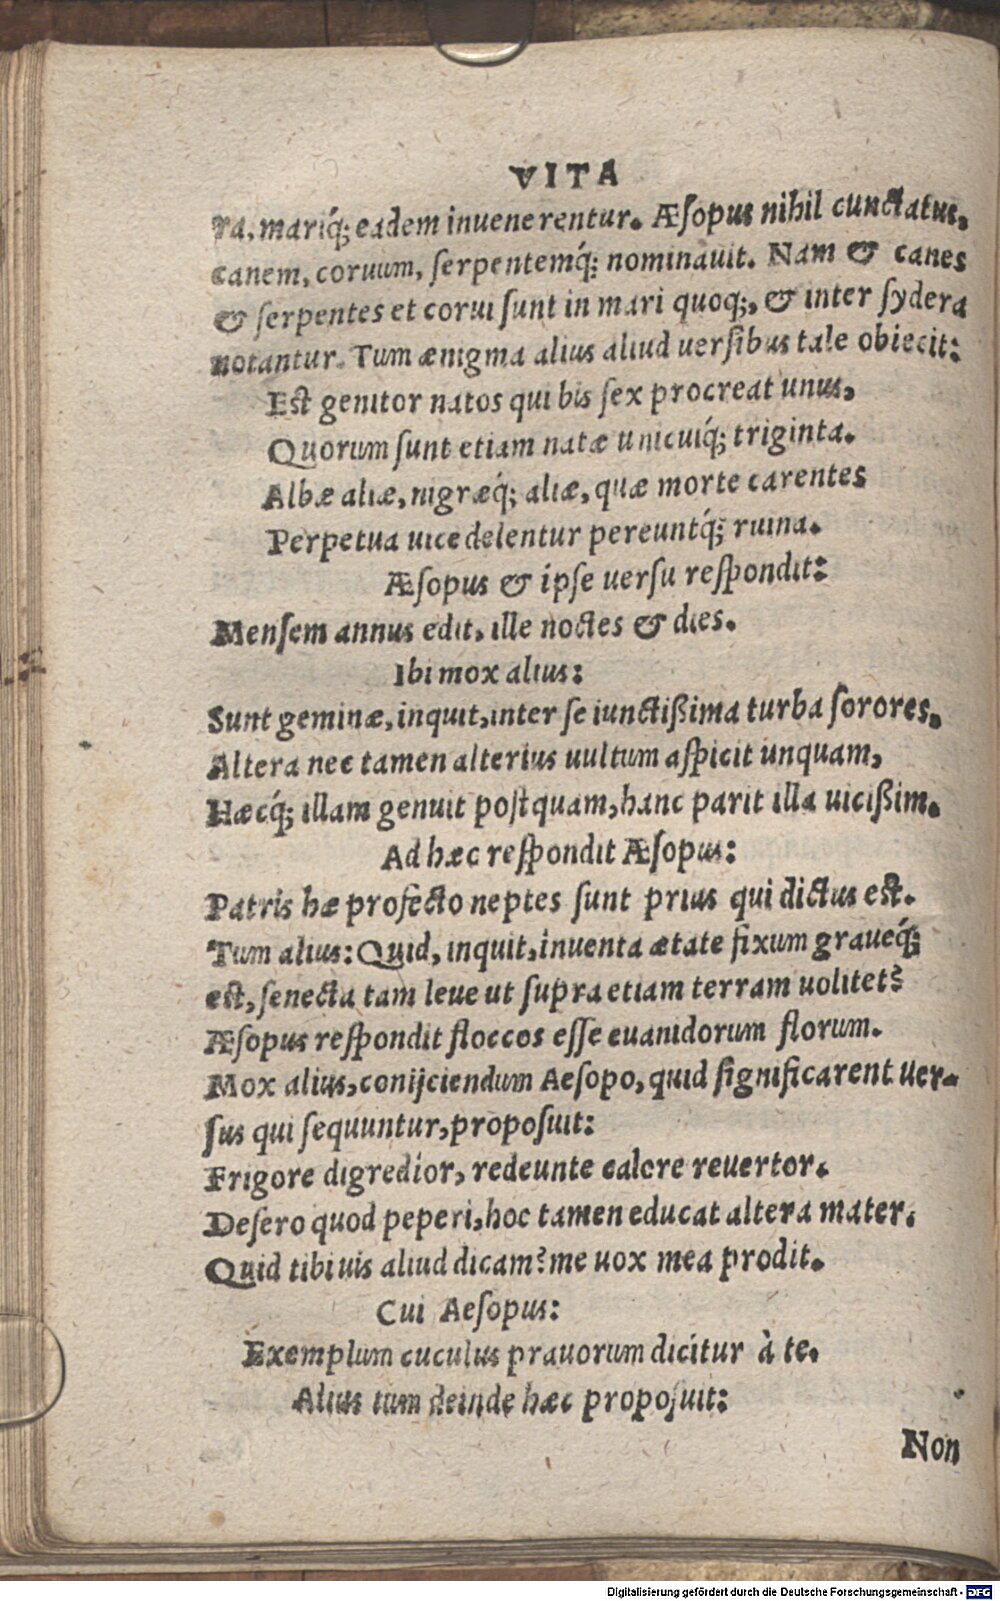 VITA
ra, mariq́; eadem inuenerentur. Æſopus nihil cunctatus,
canem, coruum, ſerpentemq́; nominauit. Nam & canes
& ſerpentes et corui ſunt in mari quoq;, & inter ſydera
notantur. Tum ænigma alius aliud uerſibus tale obiecit:
Est genitor natos qui bis ſex procreat unus,
Quorum ſunt etiam natæ unicuiq́; triginta.
Albæ aliæ, nigræq́; aliæ, quæ morte carentes
Perpetua uice delentur pereuntq́; ruina.
Æſopus & ipſe uerſu reſpondit:
Menſem annus edit, ille noctes & dies.
Ibi mox alius:
Sunt geminæ, inquit, inter ſe iunctißima turba ſorores,
Altera nec tamen alterius uultum aſpicit unquam,
Hæcq́; illam genuit postquam, hanc parit illa uicißim.
Ad hæc reſpondit Æſopus:
Patris hæ profecto neptes ſunt prius qui dictus est.
Tum alius: Quid, inquit, inuenta ætate fixum graueq́;
est, ſenecta tam leue ut ſupra etiam terram uolitet?
Æſopus reſpondit floccos eſſe euanidorum florum.
Mox alius, conijciendum Aeſopo, quid ſignificarent uer-
ſus qui ſequuntur, propoſuit:
Frigore digredior, redeunte calore reuertor.
Deſero quod peperi, hoc tamen educat altera mater.
Quid tibi uis aliud dicam? me uox mea prodit.
Cui Aeſopus:
Exemplum cuculus prauorum dicitur à te.
Alius tum deinde hæc propoſuit:
Non
Digitalisierung gefördert durch die Deutsche Forschungsgemeinschaft - DFG